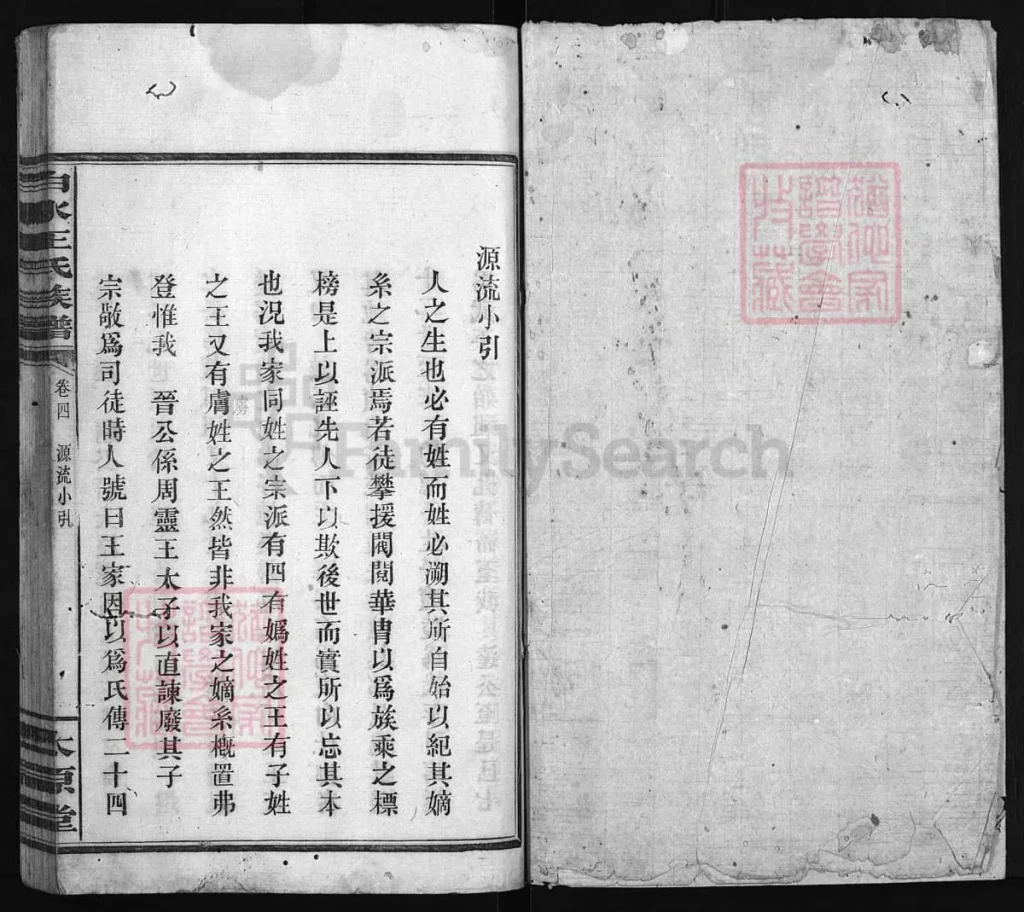 源流小引
人之生也必有姓而姓必溯其所自始以紀其嫡
系之宗派焉若徒攀援閥閱華胄以爲族乘之標
榜是上以誣先人下以欺後世而實所以忘其本
也況我家同姓之宗派有四有嬀姓之王有子姓
之王又有虜姓之王然皆非我家之嫡系概置弗
登惟我 晉公係周靈王太子以直諫廢其子
宗敬爲司徒時人號曰王家因以爲氏傳二十四
白水王氏族譜 卷四 源流小引 太原堂
FamilySearch
譜學會
收藏
譜學會
收藏